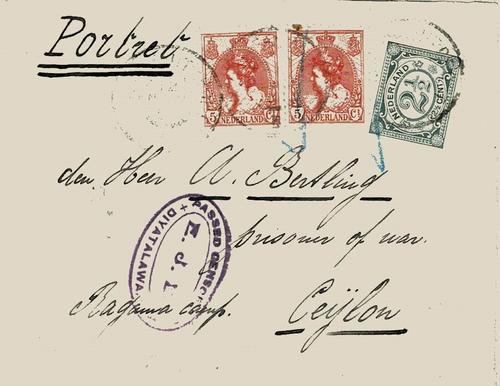 Portret
5 Ct
NEDERLAND
5 Ct
NEDERLAND
NEDERLAND
2½
CENT
den Heer A. Bertling
prisoner of war.
Ragama camp. Ceÿlon
PASSED CENSOR
DIYATALAWA